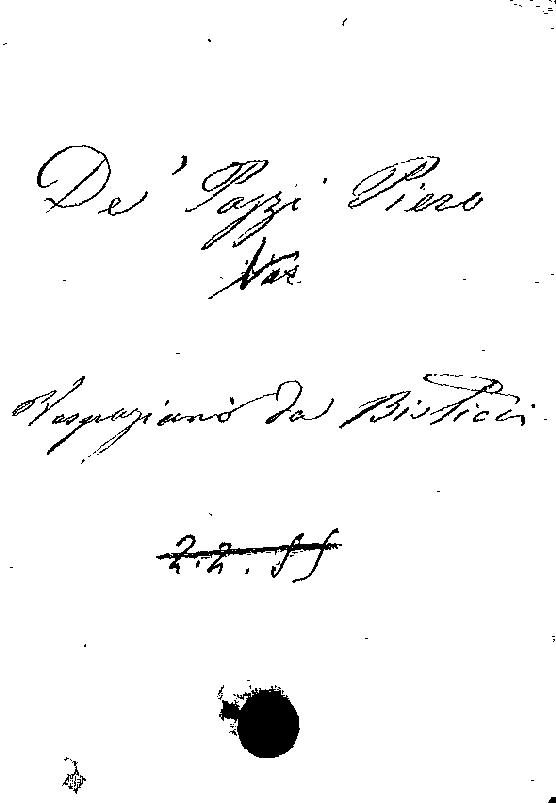 De' Pazzi Piero
Ved
Vespaziano da Bisticci
2.2.55